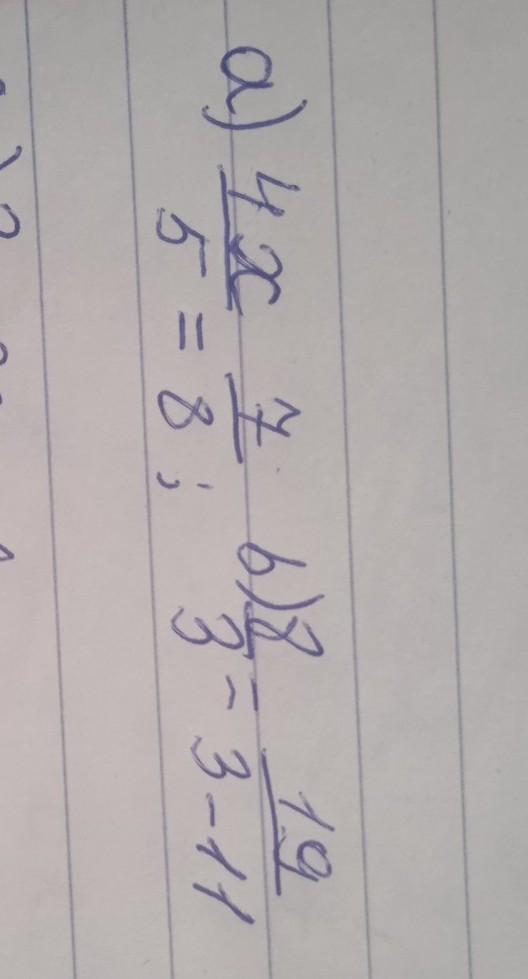 a) 4x/5 = 7/8 ; b) 8/3 = 19/3-11